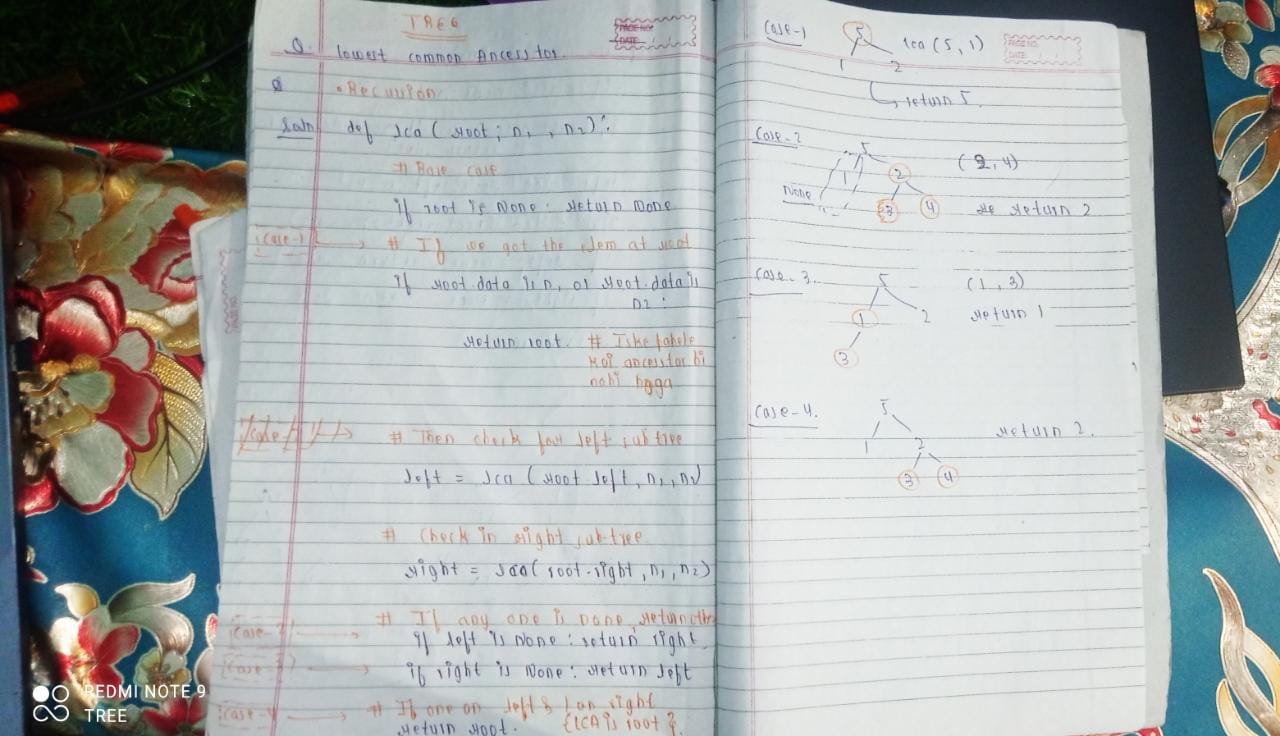 TREE
PAGE NO:
DATE:
Q. lowest common Ancesstor.
• Recursion
Soln def lca ( root, n1 , n2 ) :
# Base case
if root is None : return None
Case-1 # If we got the elem at root
if root.data is n1 or root.data is
n2 :
return root. # Iske pahele
koi ancesstor hi
nahi hoga
# Then check for left subtree
left = lca ( root left , n1 , n2)
# Check in right sub-tree
right = lca( root.right , n1 , n2)
# If any one is none, return other
Case-2 if left is None : return right
Case-3 if right is None : return left
Case-4 # If one on left & 1 on right
return root. {LCA is root }.
Case-1 5 lca (5, 1)
PAGE NO:
DATE:
1 2
return 5.
Case-2 5 (2, 4)
1 2
None 3 4 return 2
Case-3. 5 (1, 3)
1 2 return 1
3
Case-4. 5
1 2 return 2.
3 4
REDMI NOTE 9
TREE